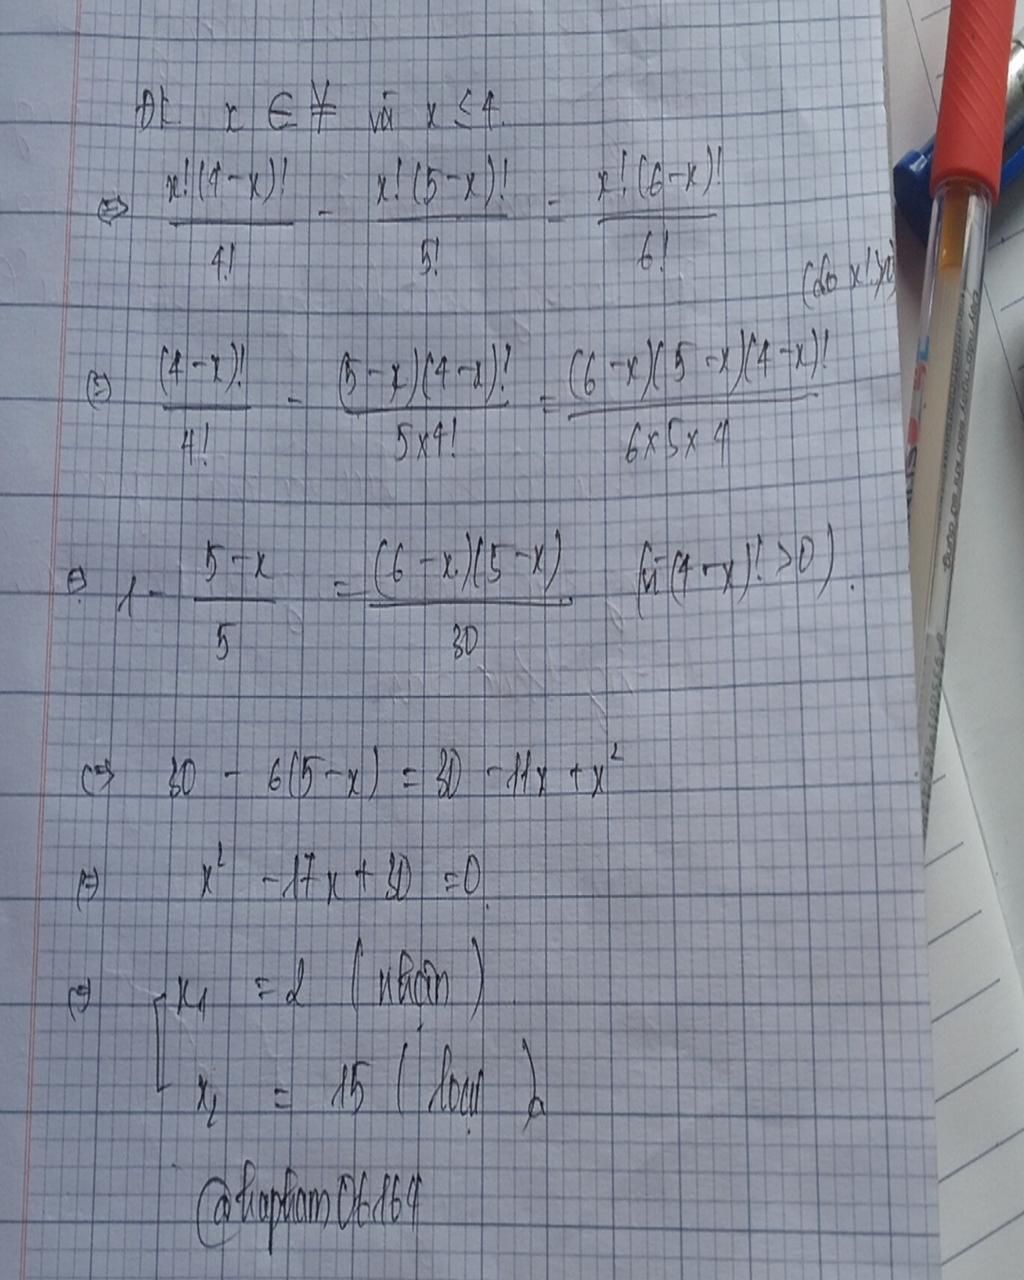 ĐK x ∈ ¥ và x ≤ 4.
⇔ x!(4-x)!/4! - x!(5-x)!/5! = x!(6-x)!/6!
(do x!>0)
⇔ (4-x)!/4! - (5-x)(4-x)!/5x4! = (6-x)(5-x)(4-x)!/6x5x4
⇔ 1 - 5-x/5 = (6-x)(5-x)/30 (vì (4-x)! >0).
⇔ 30 - 6(5-x) = 30 - 11x + x²
⇔ x² - 17x + 30 = 0.
⇔ [ x₁ = 2 (nhận)
x₂ = 15 (loại)
@hapham06164